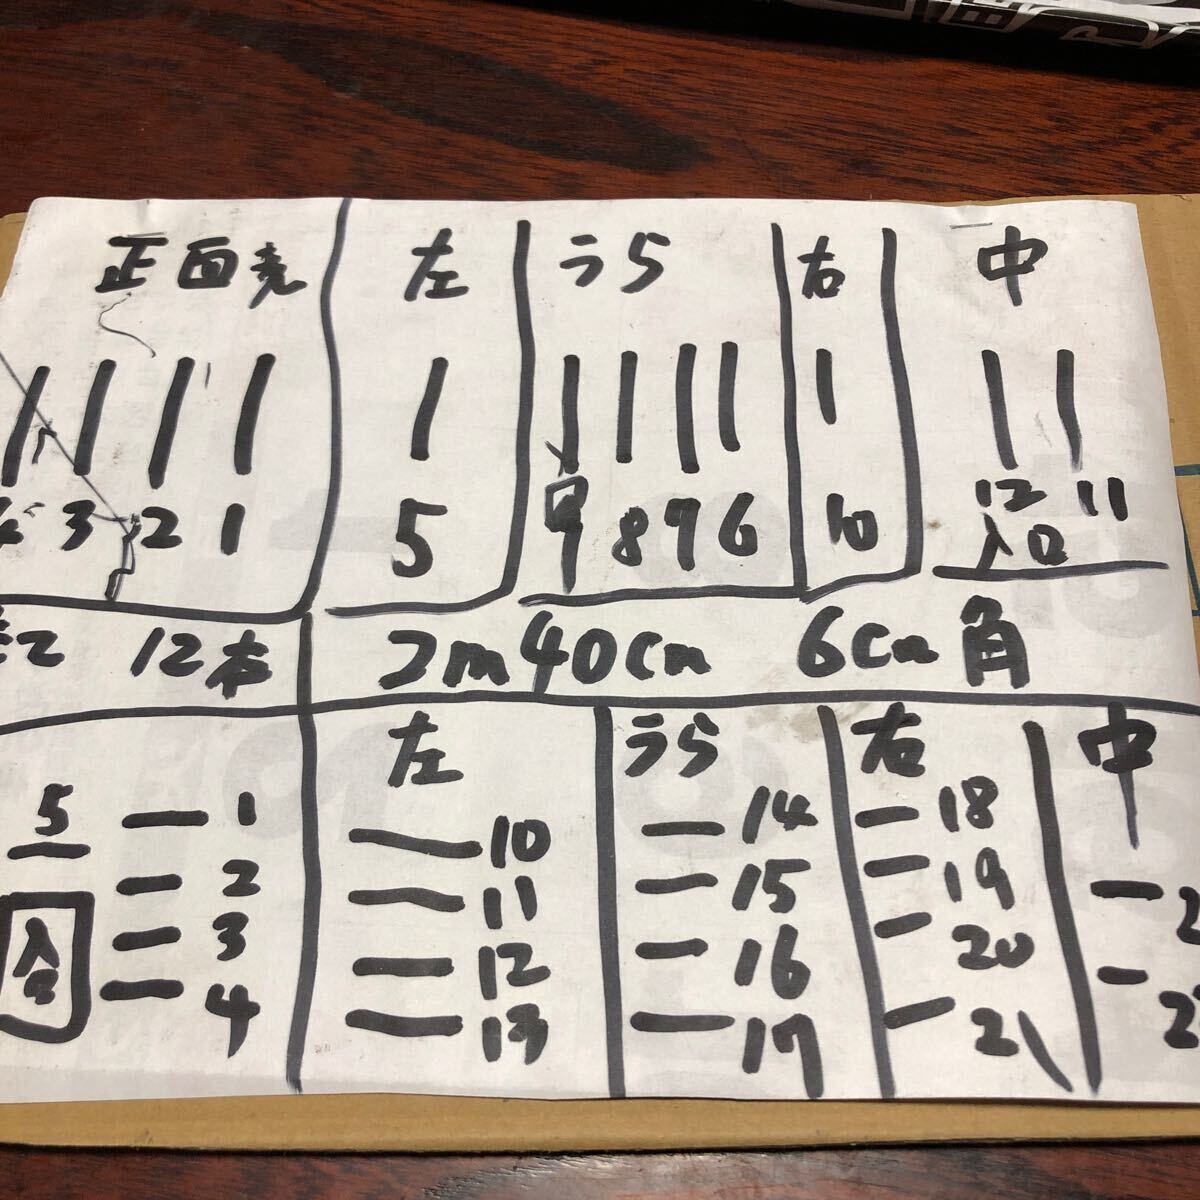 正面 左 うら 右 中
3 2 1 5 9 8 7 6 10 12 11
入口
12本 2m40cm 6cm角
左 うら 右 中
5 1 10 14 18
2 11 15 19
3 12 16 20
4 13 17 21